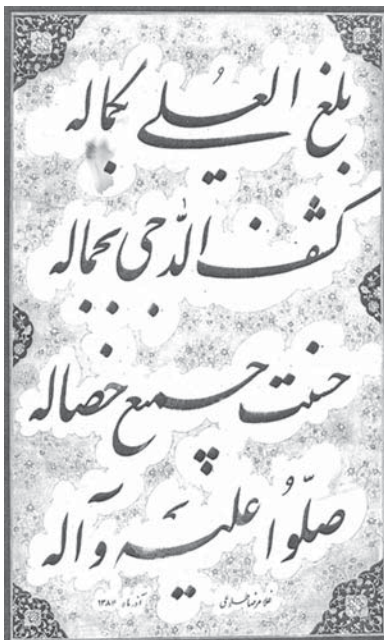 بلغ العلی بکماله
کشف الدجی بجماله
حسنت جمیع خصاله
صلّوا علیه وآله
آذر ماه ۱۳۸۴